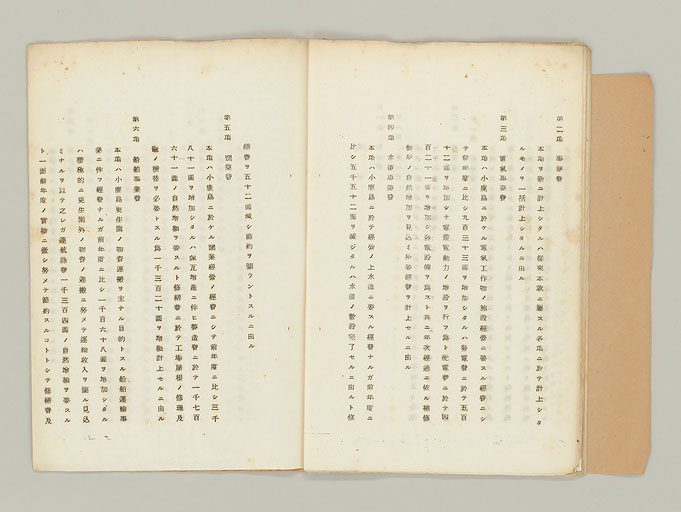 第二項 事務費
本項ヲ新ニ計上シタルハ從來本款ニ屬スル各項ニ於テ計上シタ
ルモノヲ一括計上シタルニ由ル
第三項 電氣事業費
本項ハ小鹿島ニ於ケル電氣工作物ノ施設經營ニ要スル經費ニシ
テ前年度ニ比シ九百三十三圓ヲ增加シタルハ發電費ニ於テ五百
十二圓ヲ增加シテ電燈電動力ノ增設ヲ行フ爲ト配電費ニ於テ四
百二十一圓ヲ增加シ發電設備ヲ爲スト共ニ年次經過ニ依ル補修
個所ノ自然增加ヲ見込ミ所要經費ヲ計上セルニ由ル
第四項 水道事業費
本項ハ小鹿島ニ於テ經營ノ上水道ニ要スル經費ナルガ前年度ニ
比シ五千五十二圓ヲ減ジタルハ水道ノ敷設完了セルニ由ルト修
繕費ヲ五十二圓減シ節約ヲ圖ラントスルニ由ル
第五項 窯業費
本項ハ小鹿島ニ於ケル窯業經營ノ經費ニシテ前年度ニ比シ三千
八十一圓ヲ增加シタルハ煉瓦增產ニ件ヒ製造費ニ於テ一千七百
六十一圓ノ自然增加ヲ要スルト修繕費ニ於テ工場屋根ノ修理及
ノ積替ヲ必要トスル爲一千三百二十圓ヲ增加計上セルニ由ル
第六項 船舶事業費
本項ハ小鹿島更生園ノ物資運搬ヲ主ナル目的トスル船舶運輸事
業ニ件フ經費ナルガ前年度ニ比シ一千百六十八圓ヲ增加シタル
ハ積極的ニ更生園外ノ物資ノ運搬ニ努メテ運輸收入ヲ圖ル見込
ミナルヲ以テ之レガ運航諸費一千三百四圓ノ自然增加ヲ要スル
ト一面前年度ノ實績ニ徵シ努メテ節約スルコトトシテ修繕費及